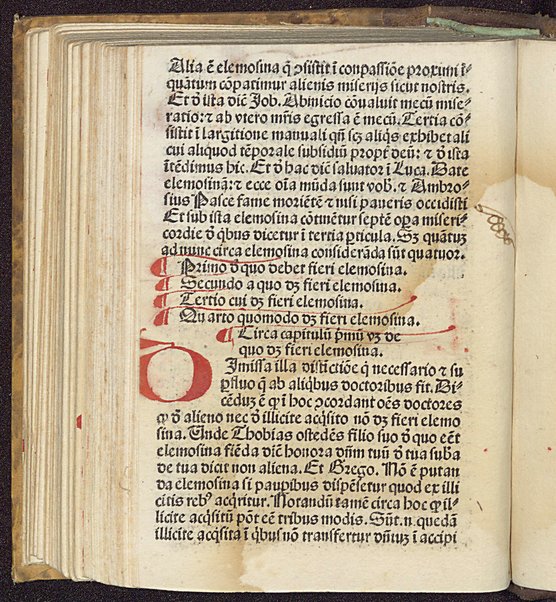 Alia ē elemosina q̄ ꝯsistit ī conpassiōe proximi ī-
quātum cōpatimur alienis miserijs sicut nostris.
Et đ ista diē Job. Abinicio cōualuit mecū mise-
ratio: ⁊ ab vtero mr̄is egressa ē mecū. Tertia cō-
sistit ī largitione manuali qn̄ scꝫ aliq̄s exhibet ali
cui aliquod tēporale subsidiū propt̓ deū: ⁊ đ ista
ītēdimus hic. Et đ hac diē saluator ī Luca. Date
elemosinā: ⁊ ecce oīa mūda sunt vob̄. ⁊ Ambro-
sius Pasce fame moriētē ⁊ nisi paueris occidisti
Et sub ista elemosina cōtinētur septē oꝑa miseri-
cordie đ q̄bus dicetur ī tertia ꝑticula. Sꝫ quātuꝫ
ad nunc circa elemosinā considerāda sūt quatuor.
¶ Primo đ quo debet fieri elemosina.
¶ Secundo a quo dꝫ fieri elemosina.
¶ Tertio cui dꝫ fieri elemosina.
¶ Quarto quomodo dꝫ fieri elemosina.
¶ Circa capitulū p̄mū vꝫ de
quo dꝫ fieri elemosina.
DImissa illa distīctiōe q̄ necessario ⁊ su
ꝑfluo q̄ ab aliq̄bus doctoribus fit. Di-
cēduꝫ ē ꝙ ī hoc ꝯcordant oēs doctores
ꝙ đ alieno nec đ illicite acq̄sito nō dꝫ fieri elemo
sina. Unde Thobias ostēdēs filio suo đ quo eēt
elemosina fiēda diē honora dn̄m tuū đ tua subā
de tua dicit non aliena. Et Grego. Nō ē putan
da elemosina si paupibus dispēsetur quod ex illi
citis rebꝰ acq̄ritur. Notandū tamē circa hoc ꝙ il-
licite acq̄sitū pōt eē tribus modis. Sūt .n. quedā
illicite acq̄sita ī q̄bus nō transfertur dn̄iuꝫ ī accipi